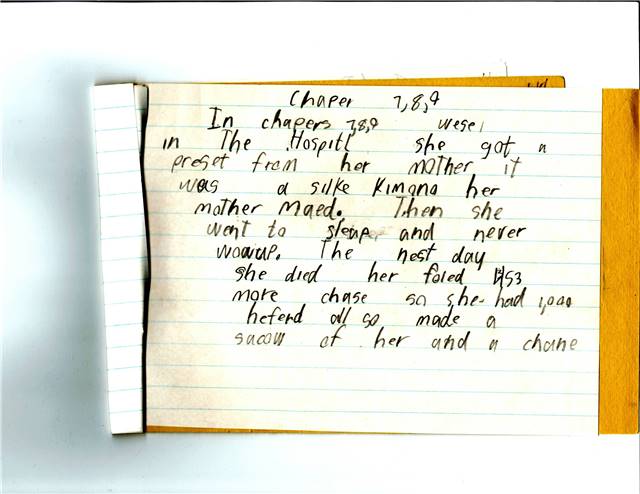 Chaper 7,8,9
In chapers 7,8,9 wese
in The Hospitl she got a
preset from her mother it
was a silke Kimano her
mother Maed. Then she
went to sleap and never
The nest day
she died her foled 453
more chase so she had 1,000
heferd all so made a
of her and a chane